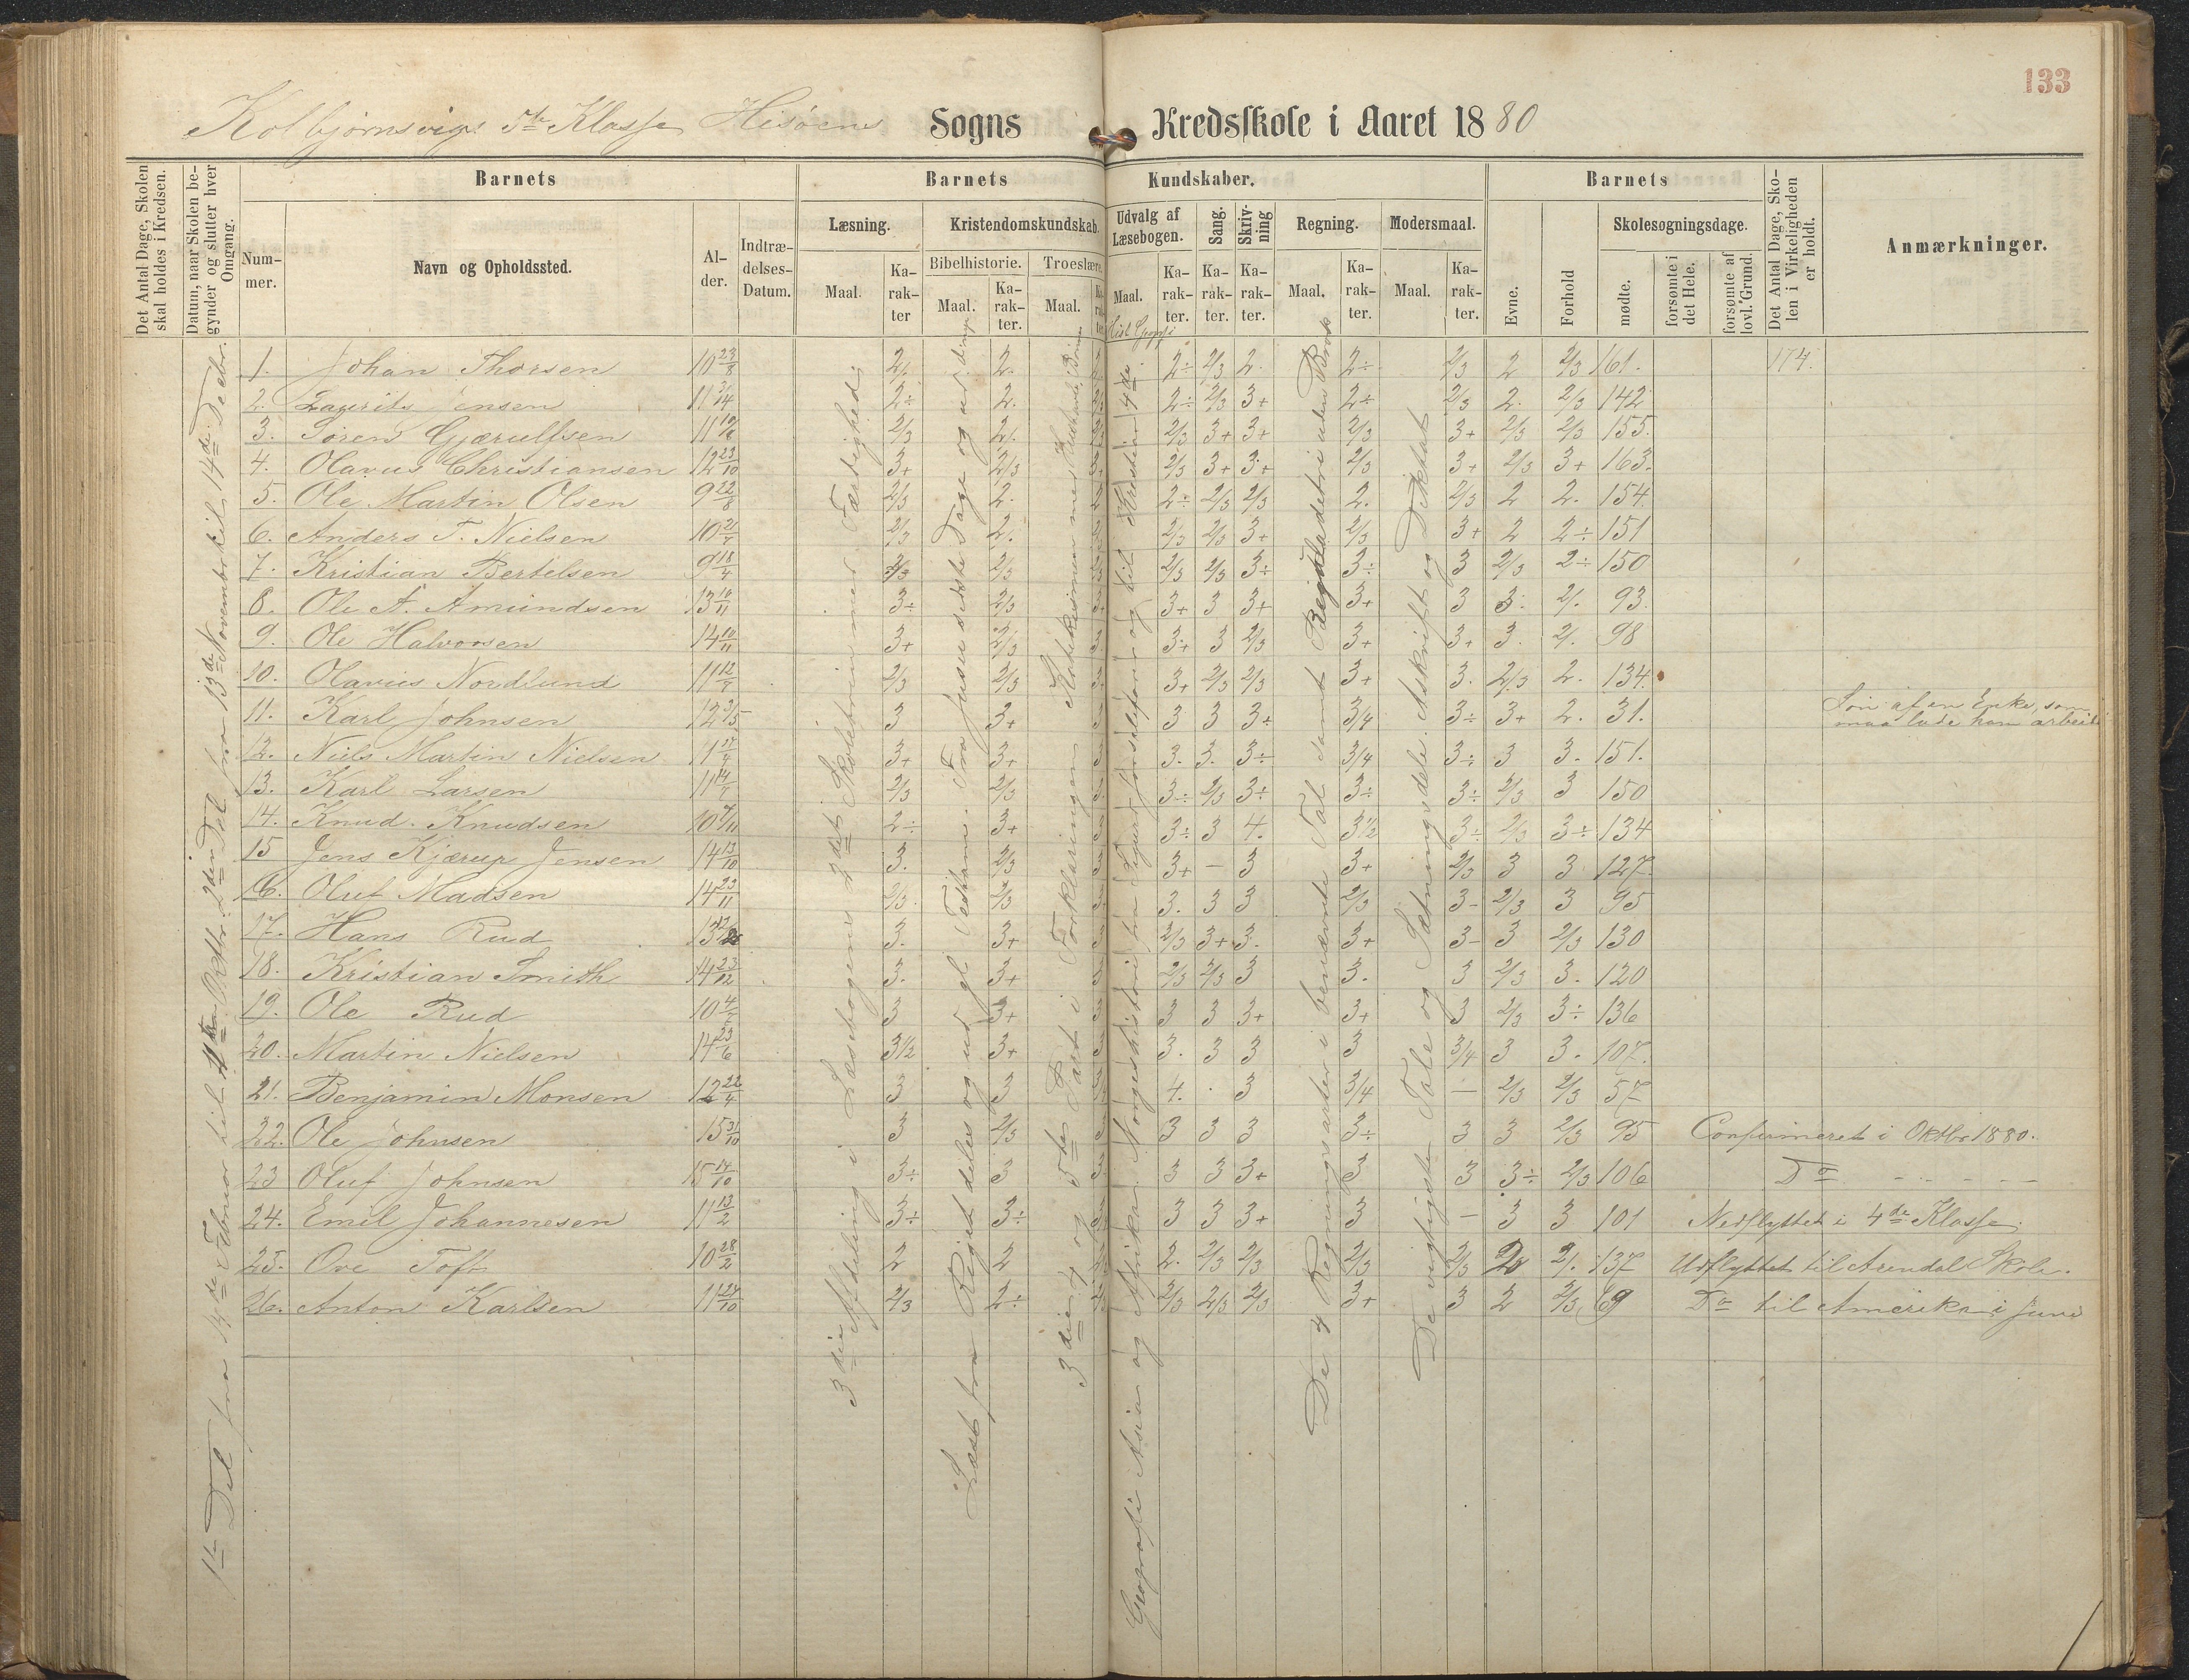 133
Kolbjørnsvigs 5te Klasse Hisøens Sogns Kredsskole i Aaret 1880
Det Antal Dage, Skolen skal holdes i Kredsen.
Datum, naar Skolen begynder og slutter hver Omgang.
Barnets
Barnets Kundskaber.
Barnets
Det Antal Dage, Skolen i Virkeligheden er holdt.
Anmærkninger.
Nummer.
Navn og Opholdssted.
Alder.
Indtrædelses-Datum.
Læsning.
Kristendomskundskab.
Udvalg af Læsebogen.
Sang.
Skrivning
Regning.
Modersmaal.
Evne.
Forhold
Skolesøgningsdage.
Bibelhistorie.
Troeslære.
Maal.
Karakter
Maal.
Karakter.
Maal.
Maal.
Karakter.
Karakter.
Karakter.
Maal.
Karakter.
Maal.
Karakter.
mødte.
forsømte i det Hele.
forsømte af lovl. Grund.
1. Johan Thorsen 10 23/8 2. 2÷ 2/3 2. 2÷ 2/3 2 2/3 161. 174.
2. Laurits Jensen 2÷ 2. 2÷ 2/3 3+ 2÷ 2/3 2. 2/3 142
3. Søren Gjærulfsen 2/3 2/. 2/3 3+ 3+ 2/3 3+ 2/3 2/3 155.
4. Olavus Christiansen 12 23/10 3+ 2/3 2/3 3+ 3+ 2/3 3+ 2/3 3+ 163.
5. Ole Martin Olsen 9 22/8 2/3 2. 2÷ 2/3 2/3 2. 2/3 2 2. 154.
6. Anders T. Nielsen 2/3 2. 2/3 2/3 3+ 2/3 3+ 2 2÷ 151
7. Kristian Bertelsen 9 18/4 2/3 2/3 2/3 2/3 3÷ 3÷ 3 2/3 2÷ 150
8. Ole A. Amundsen 3÷ 2/3 3+ 3 3+ 3+ 3 3. 2/. 93.
9. Ole Halvorsen 14 10/11 3+ 2/3 3+ 3 2/3 3+ 3+ 3. 2/. 98
10. Olavus Nordlund 2/3 2/3 3+ 2/3 2/3 3+ 3. 2/3 2. 134.
11. Karl Johnsen 3 3+ 3 3 3÷ 3/4 3÷ 3+ 2. 31. Søn af en Enke, som
maa lade ham arbeide
12. Niels Martin Nielsen 3+ 3+ 3. 3. 3÷ 3/4 3÷ 3 3. 151.
13. Karl Larsen 2/3 2/3 3÷ 2/3 3÷ 3÷ 3÷ 2/3 3 150
14. Knud Knudsen 2÷ 3+ 3÷ 3 4. 3 1/2 3÷ 2/3 3÷ 134
15 Jens Kjærup Jensen 14 13/10 3. 2/3 3+ — 3 3+ 2/3 3 3 127.
16. Oluf Madsen 14 23/11 2/3. 2/3 3. 3 3 2/3 3- 2/3 3 95
17. Hans Rud 3. 3+ 2/3 3+ 3. 3+ 3- 3 2/3 130
18. Kristian Smith 14 23/12 3. 3+ 2/3 2/3 3 3. 3 2/3 3. 120
19. Ole Rud 3 3+ 3 3 3+ 3+ 3 2/3 3÷ 136
20. Martin Nielsen 14 23/6 3 1/2 3+ 3. 3 3 3 3/4 3 3. 107.
21. Benjamin Monsen 12 22/4 3 3 4. 3 3/4 — 2/3 2/3 57
22. Ole Johnsen 15 31/10 3 2/3 3 3 3 3÷ 3 3 2/3 95 Confirmeret i Oktbr 1880.
23 Oluf Johnsen 15 14/10 3÷ 3 3 3 3+ 3 3 3÷ 2/3 106 Do
24. Emil Johannesen 11 13/2 3÷ 3÷ 3 3 3+ 3 — 3 3 101 Nedflyttet i 4de Klasse.
25. Ove Toft 10 28/2 2 2 2. 2/3 2/3 2/3 2/3 2 2/. 137 Udflyttet til Arendals Skole.
26. Anton Karlsen 11 24/10 2/3 2÷ 2/3 2/3 2/3 3+ 3 2 2/3 69 Do til Amerika i Juni
1te Del fra 14de Februar til Oktbr. 2den Del fra 13de November til 14de Decbr.
3die Afdeling i Læsebogens 2det Skoletrin med Færdighed.
Læst fra Rigets deling og ud gl Testam. Fra Jesu sidste Dage og ud
3die, 4 og 5te Part i Forklaringen Katekismen med
Geografi Asia og Afrika. Norgeshistorie fra Sigurd Jorsalefarer og til Kristian 4de.
De 4 Regningsarter i benævnte Tal samt Reguladetri uden Brøk
De vigtigste Tale og Sætningsdele. Afskrift og Diktat